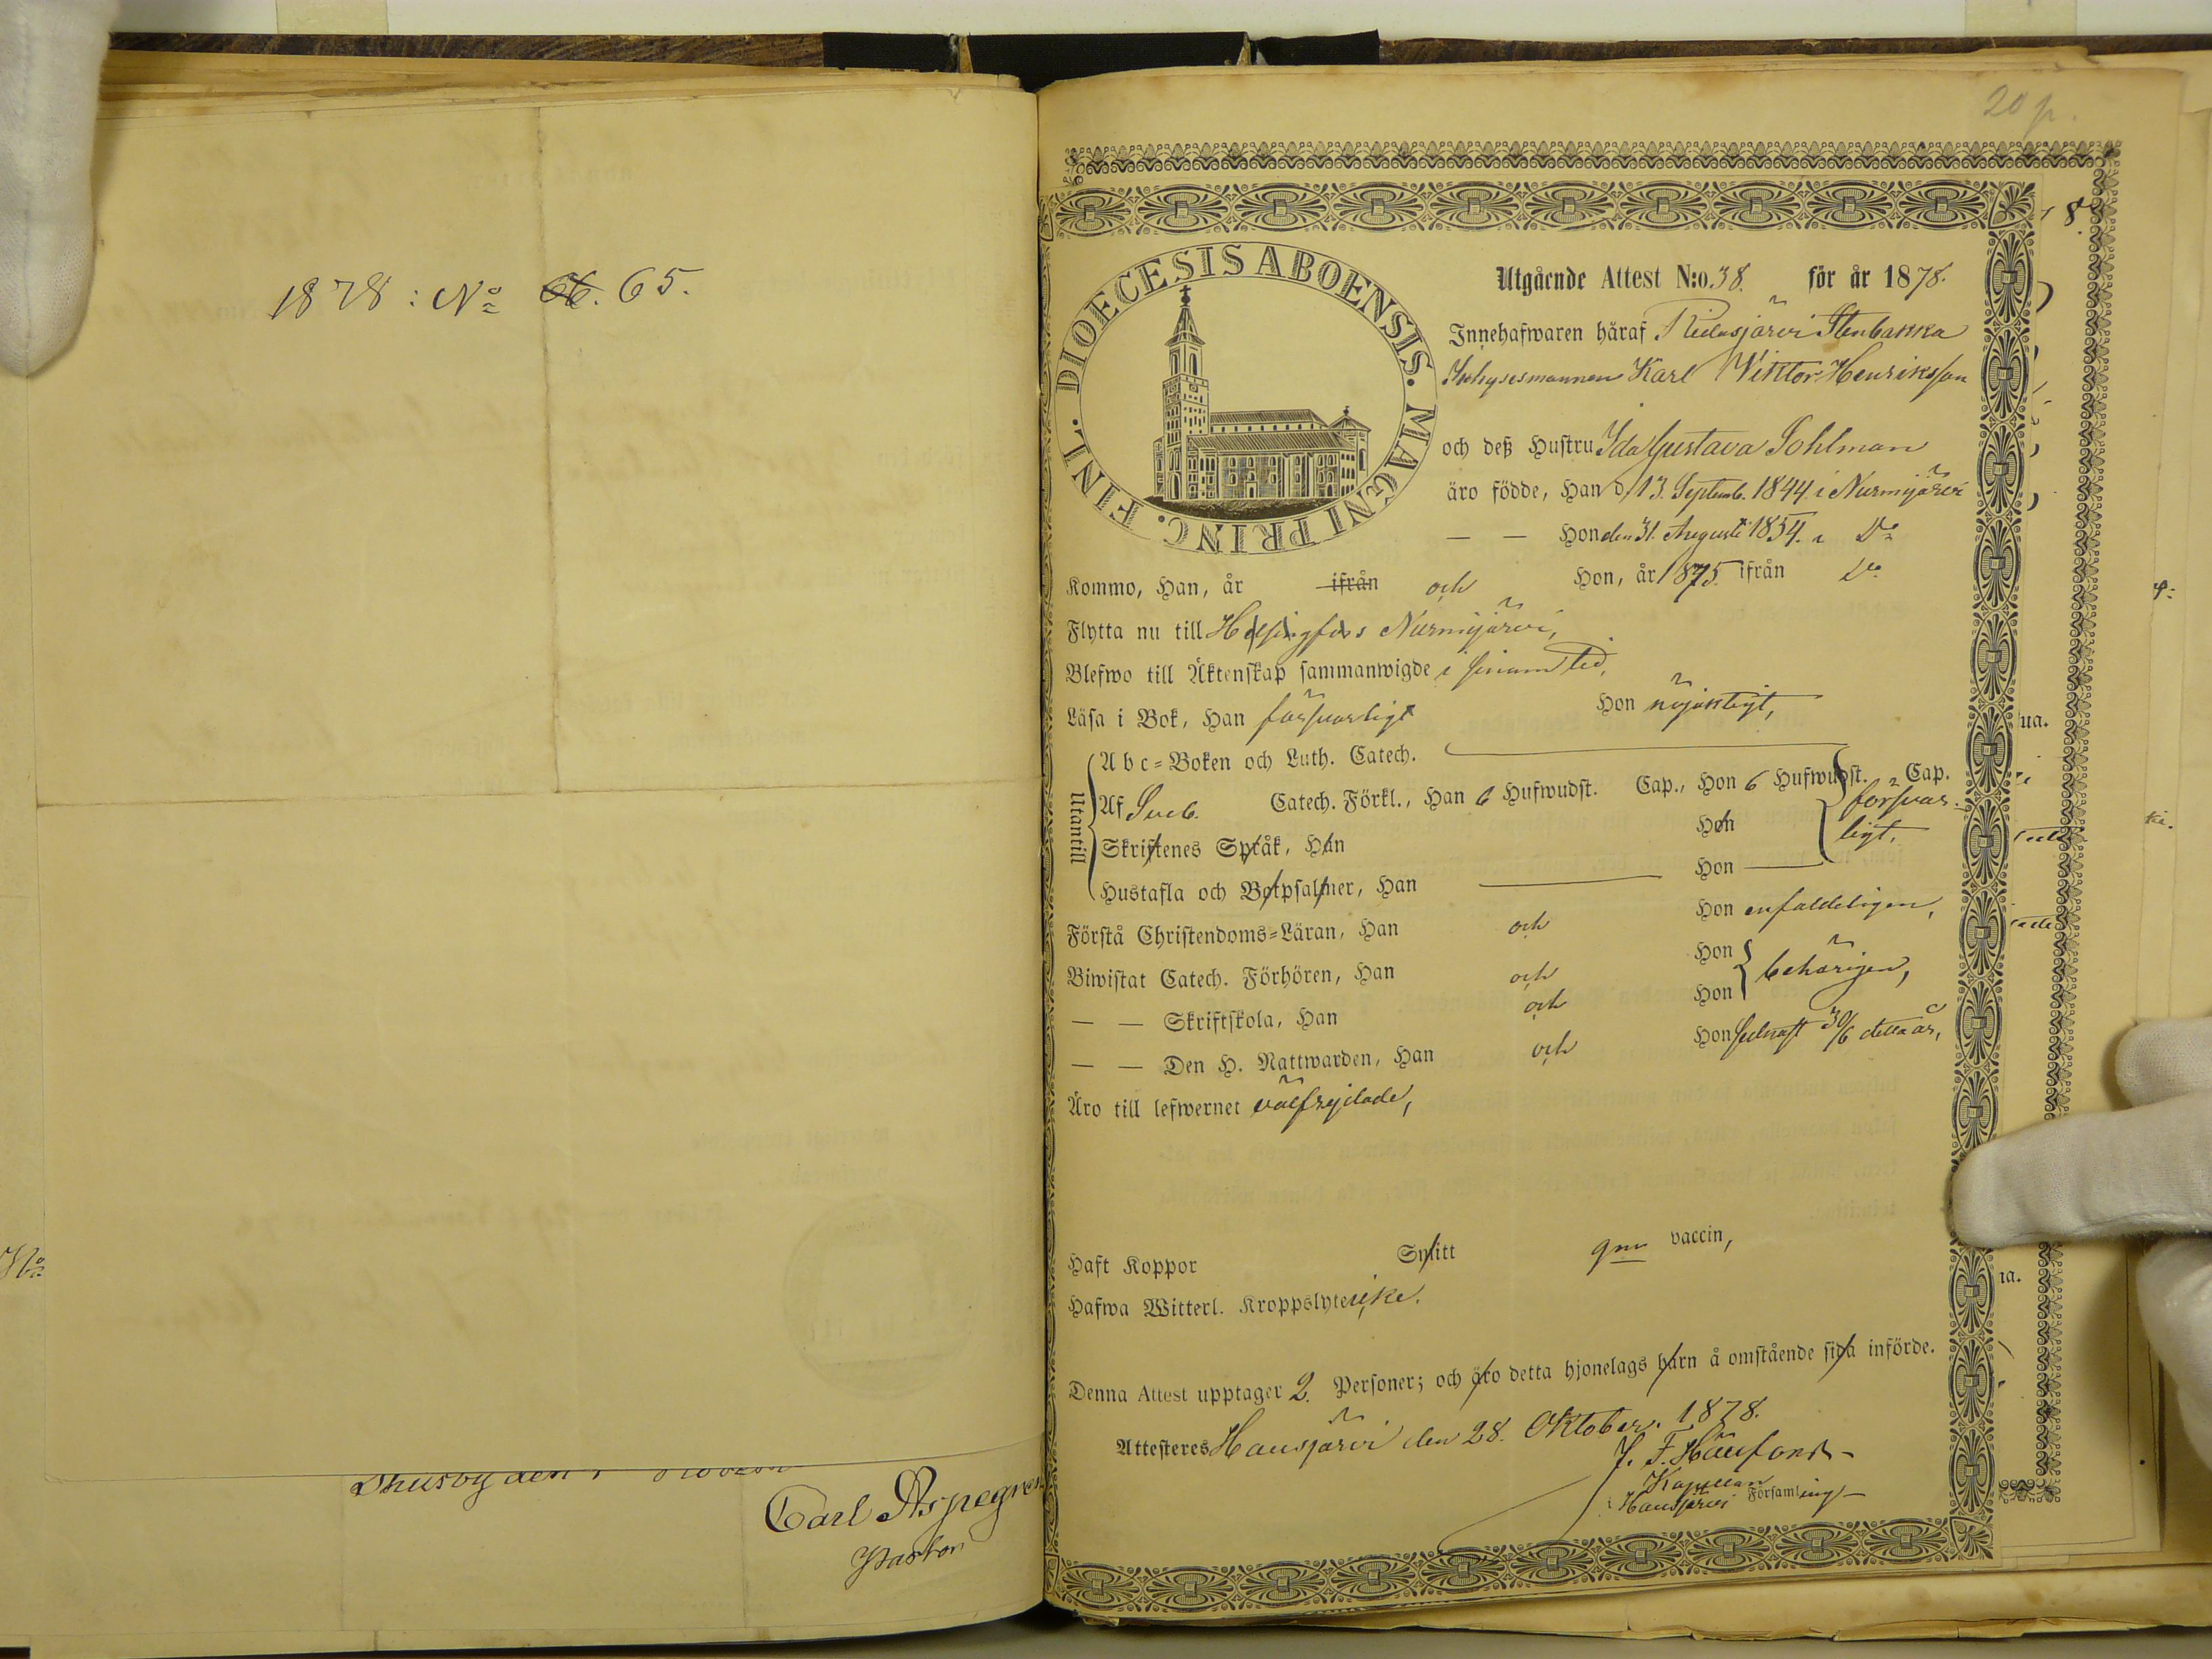 1878: No 65.
No
Carl Aspegren
Pastor
20 p.
8.
DIOECESIS ABOENSIS. MAGNI PRINC. FINL.
Utgående Attest N:o. 38. för år 1878.
Innehafwaren häraf Ridasjärvi Stenbakka
Inhysesmannen Karl Viktor Henriksson
och deß Hustru Ida Gustava Sohlman
äro födde, Han d. 13. Septemb. 1844 i Nurmijärvi
— — Hon den 31. Augusti 1854. i Do
Kommo, Han, år ifrån och Hon, år 1875. ifrån Do
Flytta nu till Helsingfors Nurmijärvi,
Blefwo till Äktenskap sammanwigde i sinom tid,
Läsa i Bok, Han försvarligt Hon nöjaktigt,
Utantill
Abc-Boken och Luth. Catech.
Af Sveb. Catech. Förkl., Han 6 Hufwudst. Cap., Hon 6 Hufwudst. Cap.
försvar-
ligt,
Skriftenes Språk, Han Hon
Hustafla och Botpsalmer, Han Hon
Förstå Christendoms-Läran, Han och Hon enfaldeligen,
Biwistat Catech. Förhören, Han och Hon behörigen,
— — Skriftskola, Han och Hon
— — Den H. Nattwarden, Han och Hon sednast 30/6 detta år,
Äro till lefwernet välfrejdade,
Haft Koppor Snitt gm vaccin,
Hafwa Witterl. Kroppslyte icke.
Denna Attest upptager 2. Personer; och äro detta hjonelags barn å omstående sida införde.
Attesteres Hausjärvi den 28. Oktober. 1878.
Kapellan
i Hausjärvi Församling